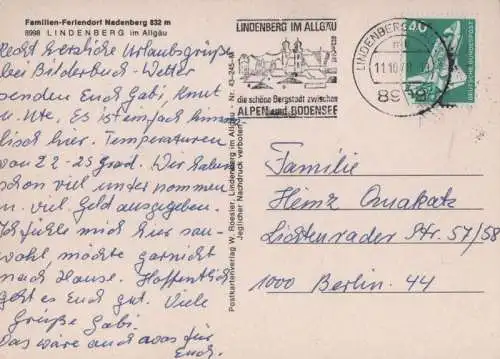 Familien-Feriendorf Nadenberg 832 m
8998 LINDENBERG im Allgäu
Recht herzliche Urlaubsgrüße
bei Bilderbuch-Wetter
senden Euch Gabi, Knut
u. Ute. Es ist einfach himm
lisch hier. Temperaturen
von 22-25 Grad. Wir haben
schon viel unternommen
u. viel Geld ausgegeben.
Ich fühle mich hier sau-
wohl, möchte garnicht
nach Hause. Hoffentlich
geht es Euch gut. Viele
Grüße Gabi.
Das wäre auch was für
Euch.
Postkartenverlag W. Roesler, Lindenberg im Allgäu - Nr. 43-245
Jeglicher Nachdruck verboten
LINDENBERG IM ALLGÄU
die schöne Bergstadt zwischen
ALPEN und BODENSEE
LINDENBERG
11.10.78
8998
40
DEUTSCHE BUNDESPOST
Familie
Heinz Quakatz
Lichtenrader Str. 57/58
1000 Berlin 44